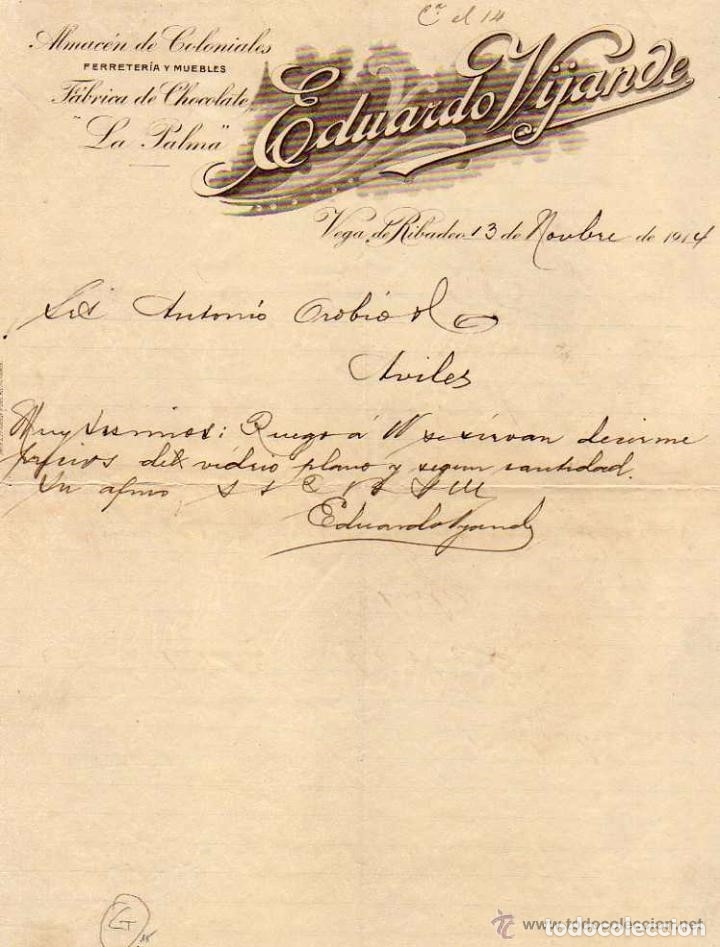 Cn el 14
Almacén de Coloniales
FERRETERÍA Y MUEBLES
Fábrica de Chocolate,
"La Palma"
Eduardo Vijande
Vega de Ribadeo 13 de Novbre de 1914
Antonio Orobio
Aviles
Ruego á VV se sirvan decirme
precios de vidrio plano y segun cantidad.
Su afmo S S Q B S M
Eduardo Vijande
G
www.todocoleccion.net
todocoleccion